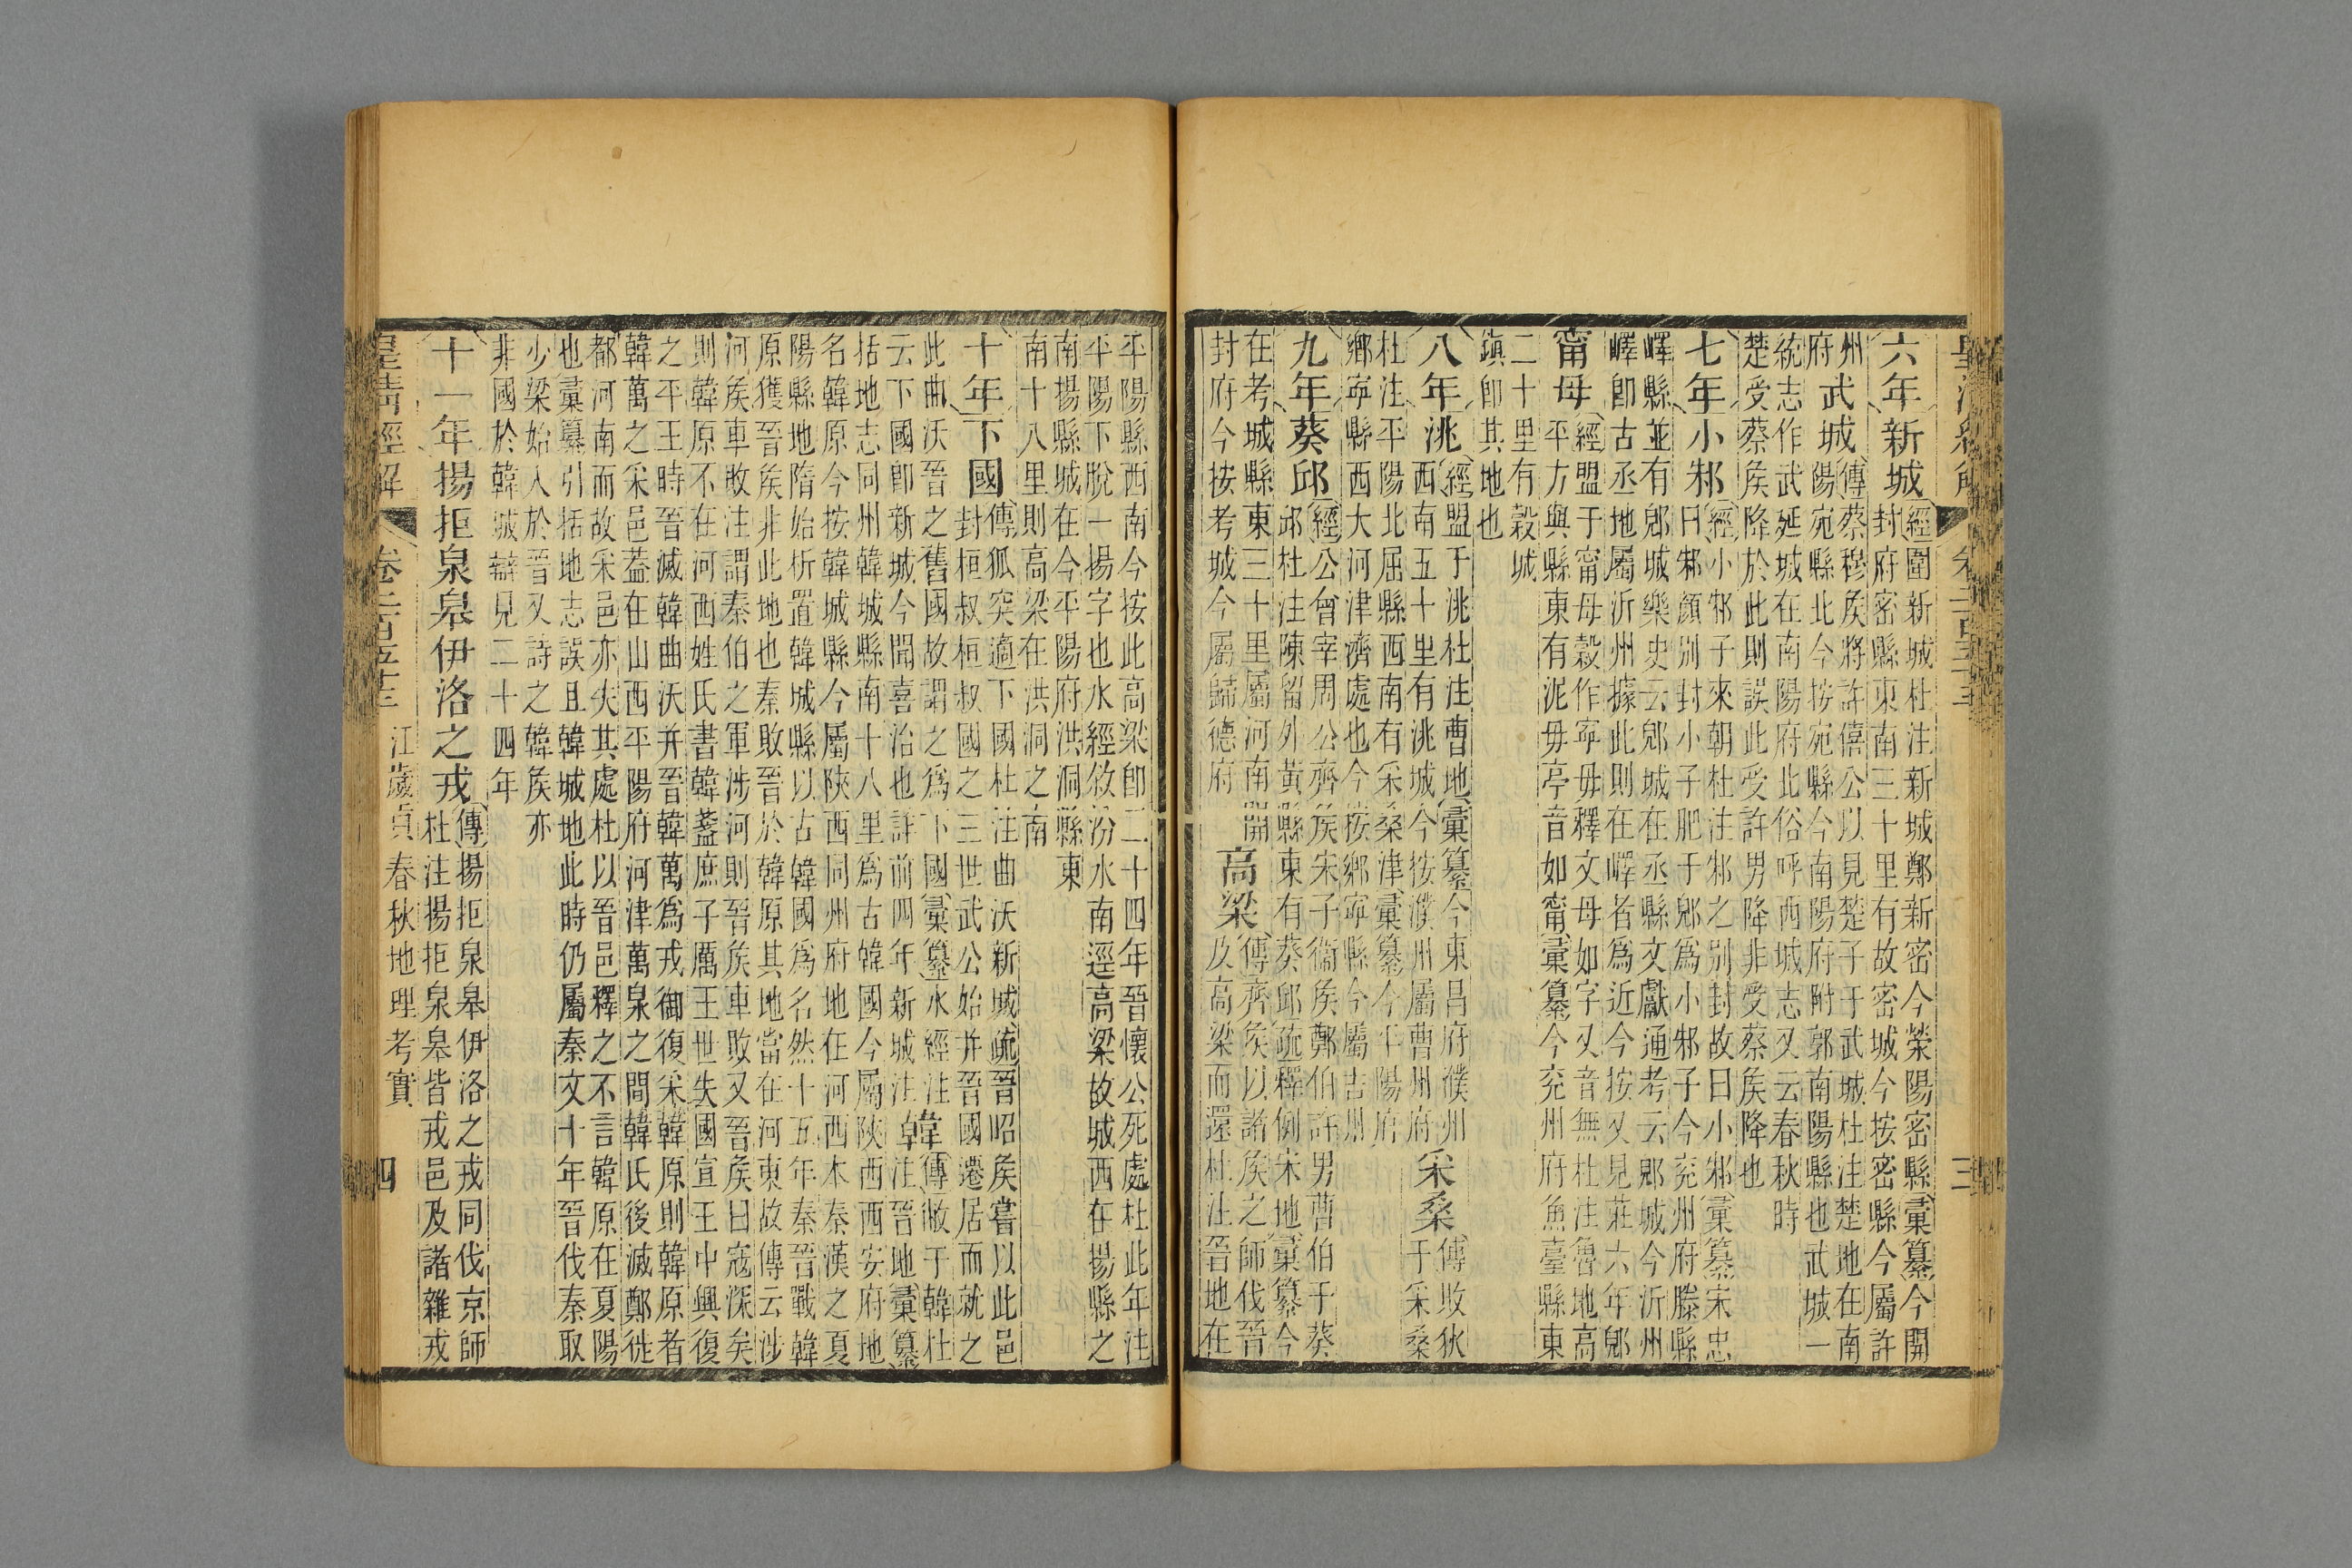 六年新城經圍新城杜注新城鄭新密今滎陽密縣彙纂今開
封府密縣東南三十里有故密城今按密縣今屬許
州武城傳蔡穆侯將許僖公以見楚子于武城杜注楚地在南
府陽宛縣北今按宛縣今南陽府附郭南陽縣也武城一
統志作武延城在南陽府北俗呼西城志又云春秋時
楚受蔡侯降於此則誤此受許男降非受蔡侯降也
七年小邾經小邾子來朝杜注邾之別封故曰小邾彙纂宋忠
曰邾顏別封小子肥于郳爲小邾子今兗州府滕縣
嶧縣並有郳城樂史云郳城在丞縣文獻通考云郳城今沂州
嶧卽古丞地屬沂州據此則在嶧者爲近今按又見莊六年郳
甯母經盟于甯母穀作寧毋釋文母如字又音無杜注魯地高
平方與縣東有泥毋亭音如甯彙纂今兗州府魚臺縣東
二十里有穀城
鎮卽其地也
八年洮經盟于洮杜注曹地彙纂今東昌府濮州
西南五十里有洮城今按濮州屬曹州府
采桑傳敗狄
于采桑
杜注平陽北屈縣西南有采桑津彙纂今平陽府
鄉寧縣西大河津濟處也今按鄉寧縣今屬吉州
九年葵邱經公會宰周公齊侯宋子衞侯鄭伯許男曹伯于葵
邱杜注陳留外黃縣東有葵邱疏釋例宋地彙纂今
在考城縣東三十里屬河南開
封府今按考城今屬歸德府
高梁傳齊侯以諸侯之師伐晉
及高梁而還杜注晉地在
平陽縣西南今按此高梁卽二十四年晉懷公死處杜此年注
平陽下脫一揚字也水經敘汾水南逕高梁故城西在揚縣之
南揚縣城在今平陽府洪洞縣東
南十八里則高梁在洪洞之南
十年下國傳狐突適下國杜注曲沃新城疏晉昭侯嘗以此邑
封桓叔桓叔國之三世武公始幷晉國遷居而就之
此曲沃晉之舊國故謂之爲下國彙纂水經注
云下國卽新城今聞喜治也詳前四年新城注
韓傳敝于韓杜
注晉地彙纂
括地志同州韓城縣南十八里爲古韓國今屬陝西西安府地
名韓原今按韓城縣今屬陝西同州府地在河西木秦漢之夏
陽縣地隋始析置韓城縣以古韓國爲名然十五年秦晉戰韓
原獲晉侯非此地也秦敗晉於韓原其地當在河東故傳云涉
河侯車敗注謂秦伯之軍涉河則晉侯車敗又晉侯曰寇深矣
則韓原不在河西姓氏書韓蓋庶子厲王世失國宣王中興復
之平王時晉滅韓曲沃幷晉韓萬爲戎御復采韓原則韓原者
韓萬之采邑蓋在山西平陽府河津萬泉之間韓氏後滅鄭徙
都河南而故采邑亦失其處杜以晉邑釋之不言韓原在夏陽
也彙纂引括地志誤且韓城地此時仍屬秦文十年晉伐秦取
少梁始入於晉又詩之韓侯亦
非國於韓城辯見二十四年
十一年揚拒泉皋伊洛之戎傳揚拒泉皋伊洛之戎同伐京師
杜注揚拒泉皋皆戎邑及諸雜戎
皇清經解 卷二百五十三 江歲貢春秋地理考實 四